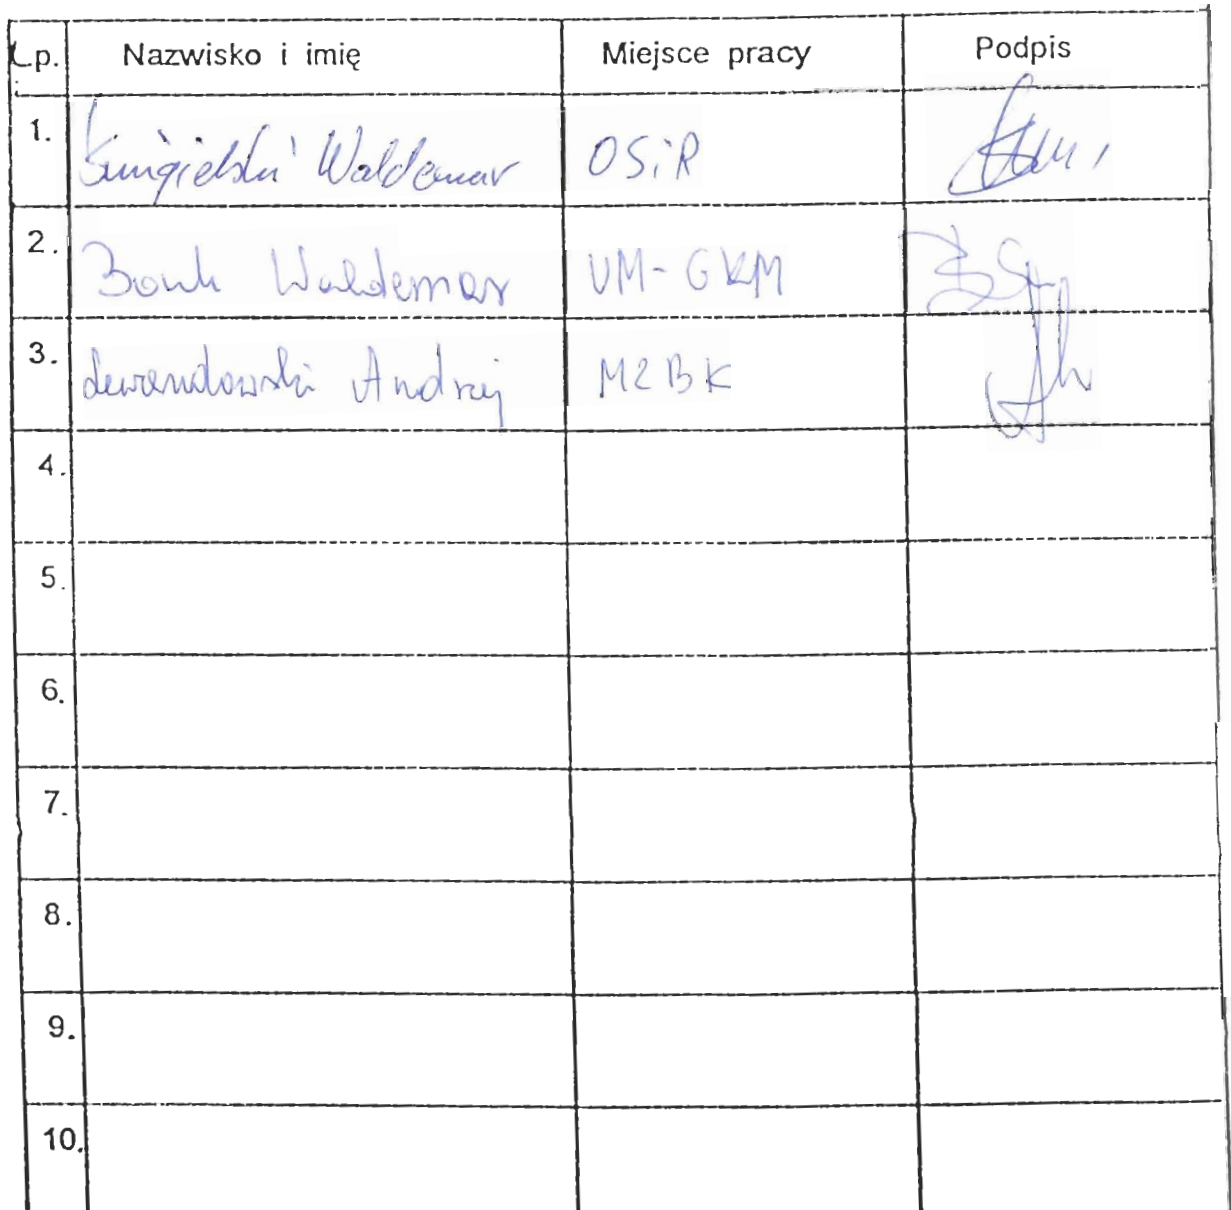 Lp. Nazwisko i imię Miejsce pracy Podpis
1. Śmigielski Waldemar OSiR
2. Bonk Waldemar UM-GKM
3. Lewandowski Andrzej MZBK
4.
5.
6.
7.
8.
9.
10.